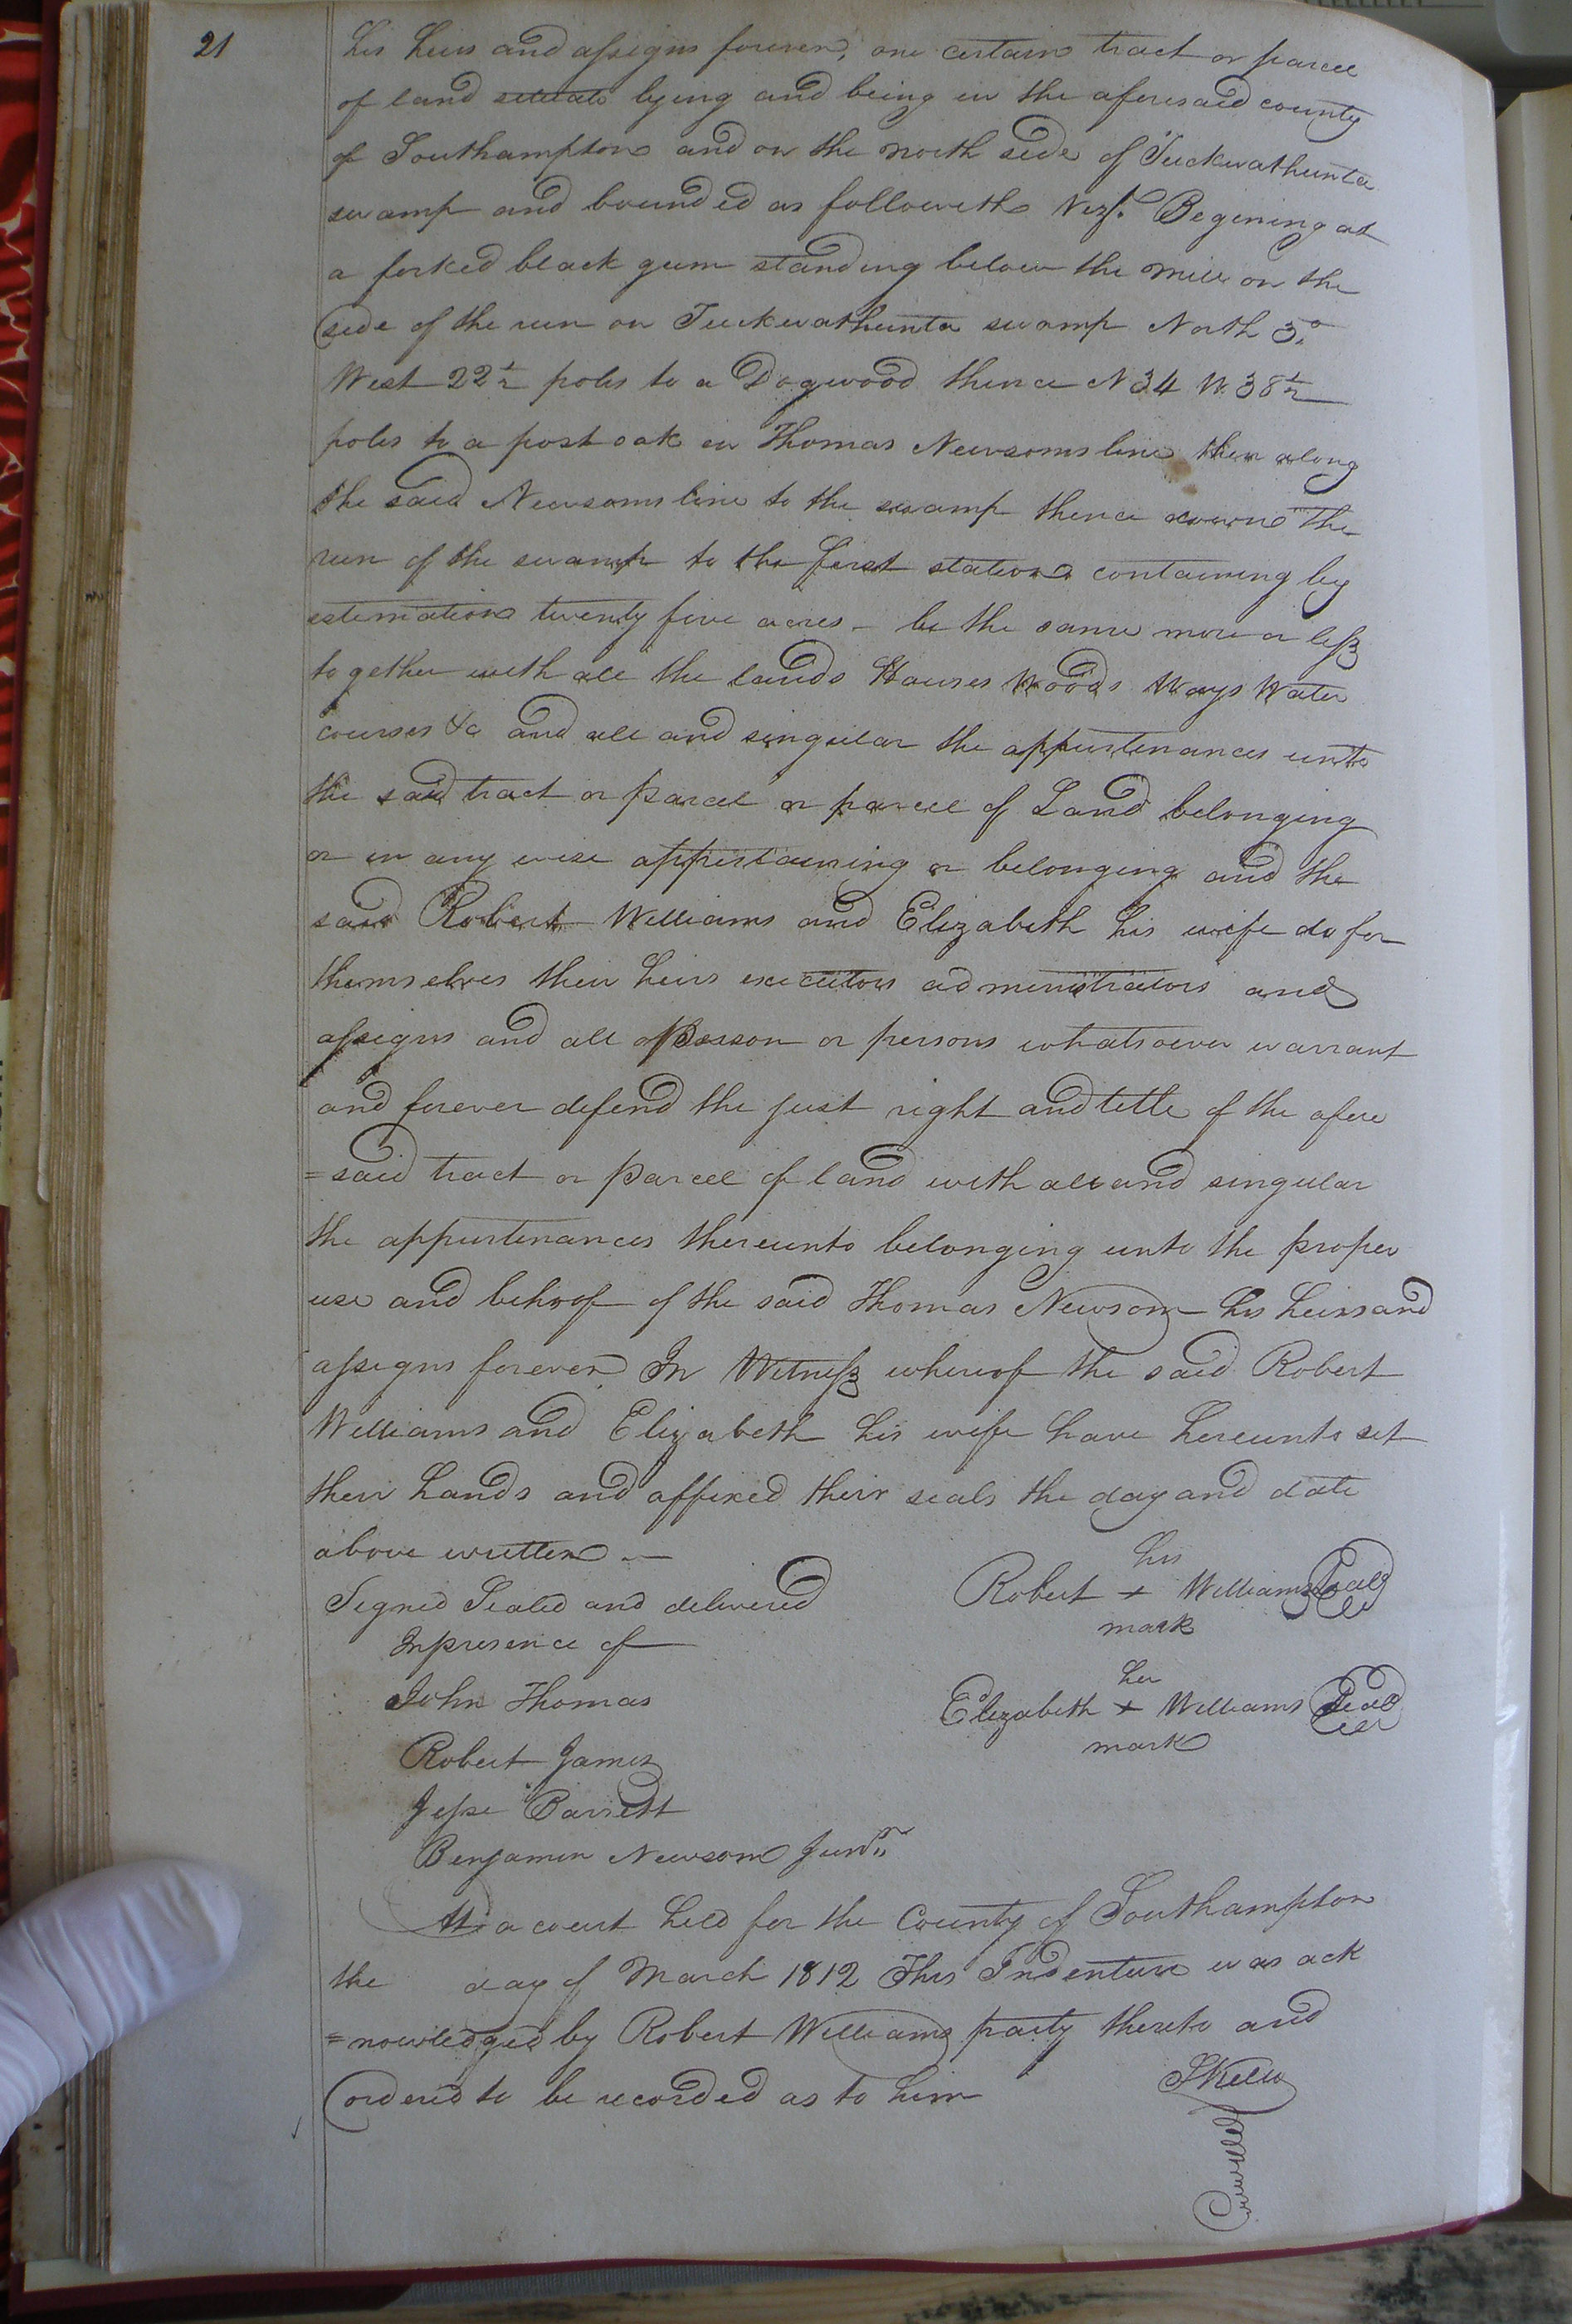 21
his heirs and assigns forever, one certain tract or parcel
of land situate lying and being in the aforesaid county
of Southampton and on the north side of Tuckwathunta
swamp and bounded as followeth Vizt. Begining at
a forked black gum standing below the mill on the
side of the run on Tuckwathunta swamp North 3°
West 22½ poles to a Dogwood thence N 34 W. 38½
poles to a post oak in Thomas Newsoms line then along
the said Newsoms line to the swamp thence down the
run of the swamp to the first station containing by
estimation twenty five acres - be the same more or less
together with all the lands Houses Woods Ways Water
courses &c and all and singular the appurtenances unto
the said tract or parcel or parcel of Land belonging
or in any wise appertaining or belonging and the
said Robert Williams and Elizabeth his wife do for
themselves their heirs executors administrators and
assigns and all person or persons whatsoever warrant
and forever defend the just right and title of the afore
=said tract or parcel of land with all and singular
the appurtenances thereunto belonging unto the proper
use and behoof of the said Thomas Newsom his heirs and
assigns forever In Witness whereof the said Robert
Williams and Elizabeth his wife have hereunto set
their hands and affixed their seals the day and date
above written —
his
Signed Sealed and delivered Robert + Williams Seal
mark
Inpresence of
her
John Thomas Elizabeth + Williams Seal
mark
Robert James
Jesse Barrett
Benjamin Newsom Junr.
At a court held for the County of Southampton
the day of March 1812 This Indenture was ack
=nowledged by Robert Williams party thereto and
ordered to be recorded as to him